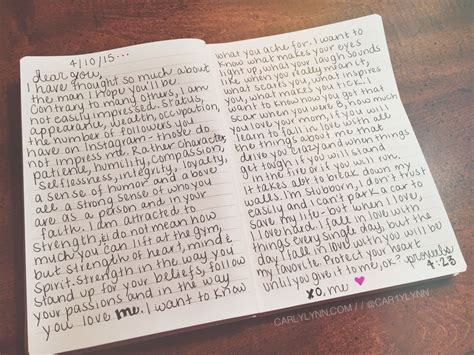 4/10/15...
dear you,
I have thought so much about
the man I hope you'll be.
Contrary to many others, I am
not easily impressed. Status,
appearance, wealth, occupation,
the number of followers you
have on Instagram - those do
not impress me. Rather character,
patience, humility, compassion,
selflessness, integrity, loyalty,
a sense of humor and above
all a strong sense of who you
are as a person and in your
faith. I am attracted to
strength, & I do not mean how
much you can lift at the gym,
but strength of heart, mind &
spirit. Strength in the way you
stand up for your beliefs, follow
your passions and in the way
you love me. I want to know
what you ache for. I want to
know what makes your eyes
light up, what your laugh sounds
like when you really mean it,
what scares you, what inspires
you, what makes you tick. I
want to know how you got that
scar when you were 8, how much
you love your mom, if you will
learn to fall in love with all
the things about me that
drive you crazy and when things
get tough if you will stand
in the fire or if you will run.
It takes alot to break down my
walls. I'm stubborn, I don't trust
easily and I can't park a car to
save my life - but when I love
I love hard. I fall in love with
things every single day, but the
fall in love with you will be
my favorite. Protect your heart
until you give it to me, ok? proverbs
4:23
xo, me
CARLYLYNN.COM // @CAR1YLYNN